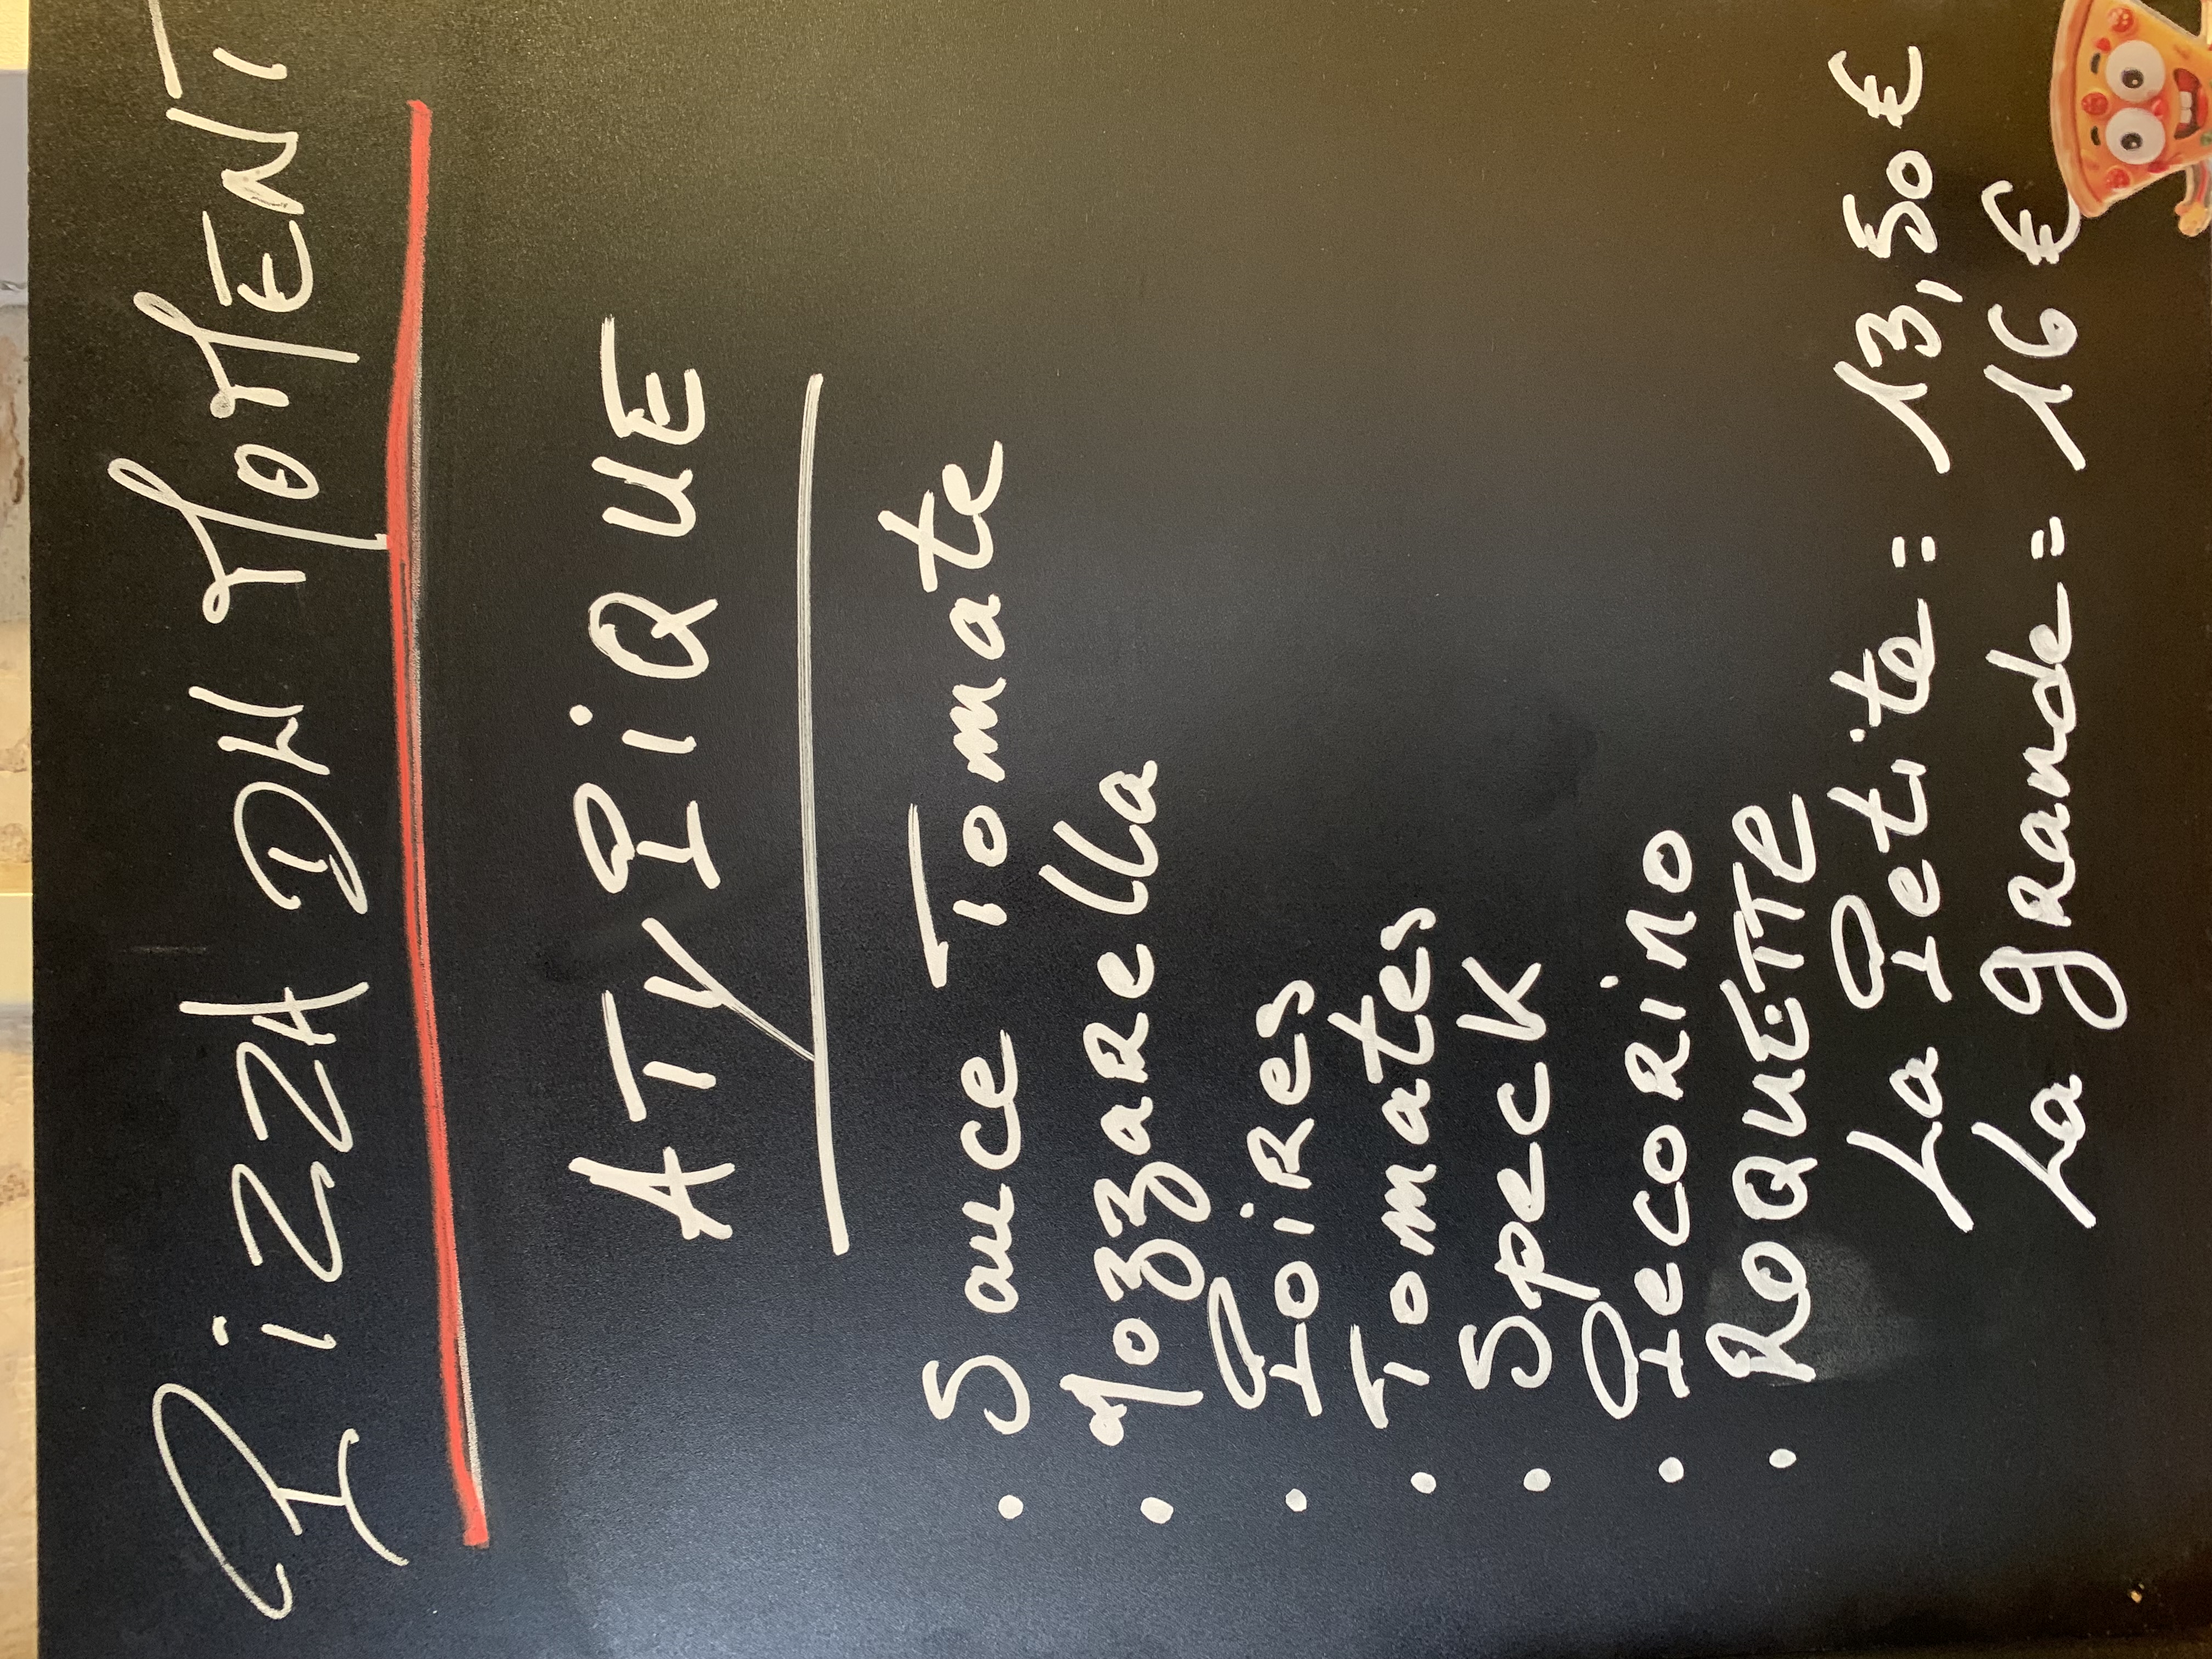 PiZZA DU MOMENT
ATYPiQUE
• Sauce Tomate
• Mozzarella
• Poires
• Tomates
• Speck
• Pecorino
• ROQUETTE
La Petite = 13,50 €
La grande = 16 €